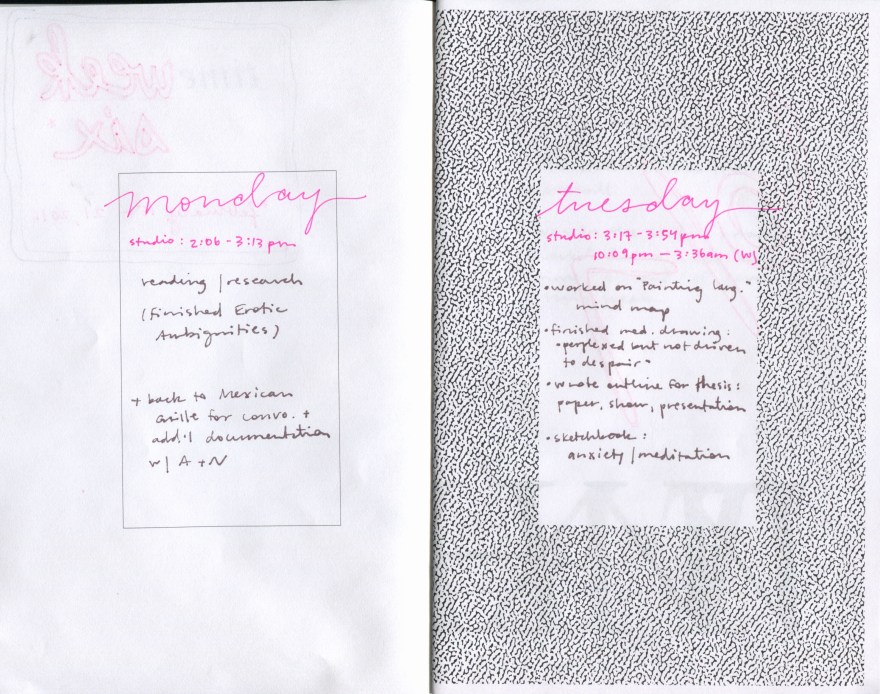 week
six
monday
studio: 2:06-3:13 pm
reading / research
(finished Erotic
Ambiguities)
+ back to Mexican
grille for convo. +
add'l documentation
w/ A + N
tuesday
studio: 3:17-3:54 pm
10:09 pm — 3:36 am (W)
• worked on "Painting Lang."
mind map
• finished med. drawing:
"perplexed but not driven
to despair"
• wrote outline for thesis:
paper, show, presentation
• sketchbook:
anxiety / meditation